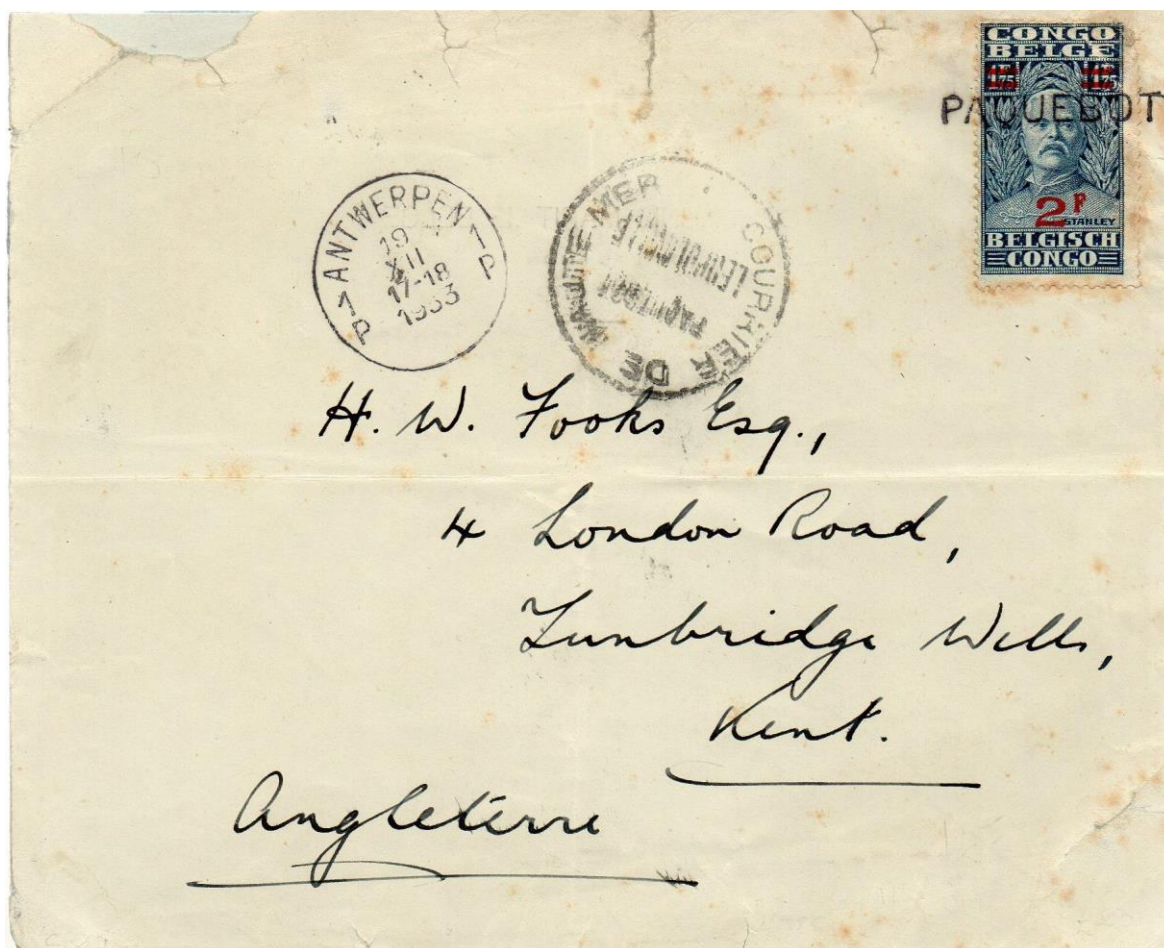 CONGO
BELGE
1F75 1F75
PAQUEBOT
2F
STANLEY
BELGISCH
CONGO
P 1 ANTWERPEN 1 P
19
XII
17-18
1933
COURRIER DE HAUTE MER
PAQUEBOT
LEOPOLDVILLE
H. W. Fooks Esq.,
4 London Road,
Tunbridge Wells,
Kent.
Angleterre